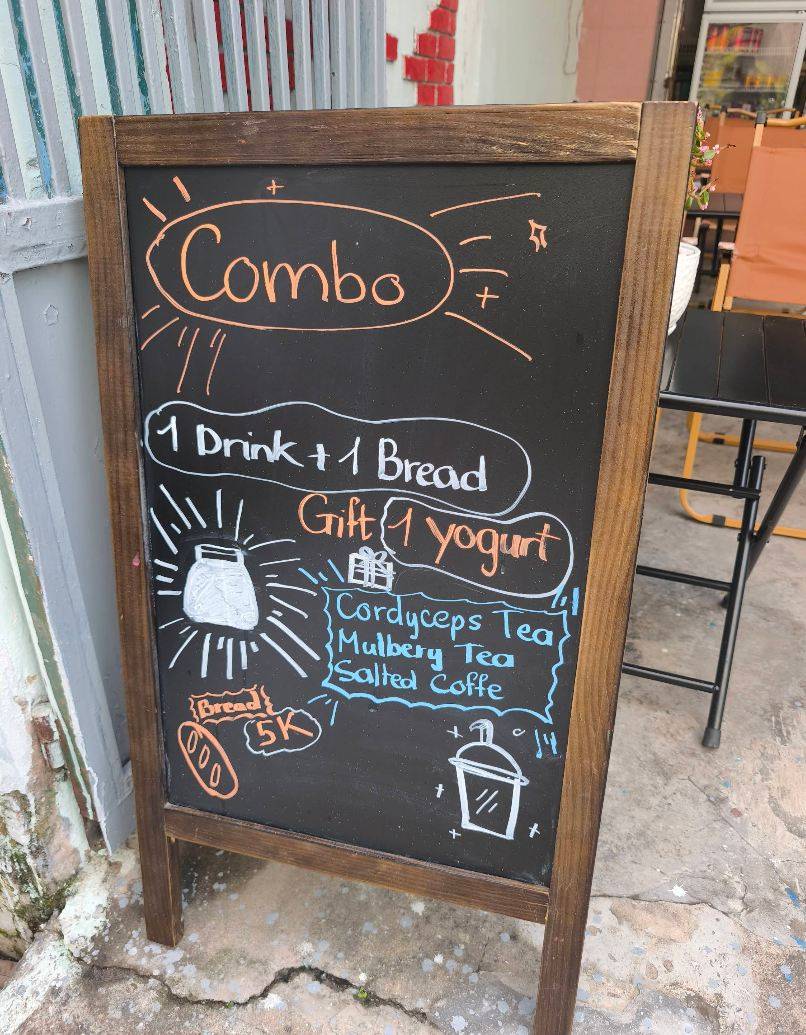 Combo
1 Drink + 1 Bread
Gift 1 yogurt
Cordyceps Tea
Mulbery Tea
Salted Coffe
Bread
5K